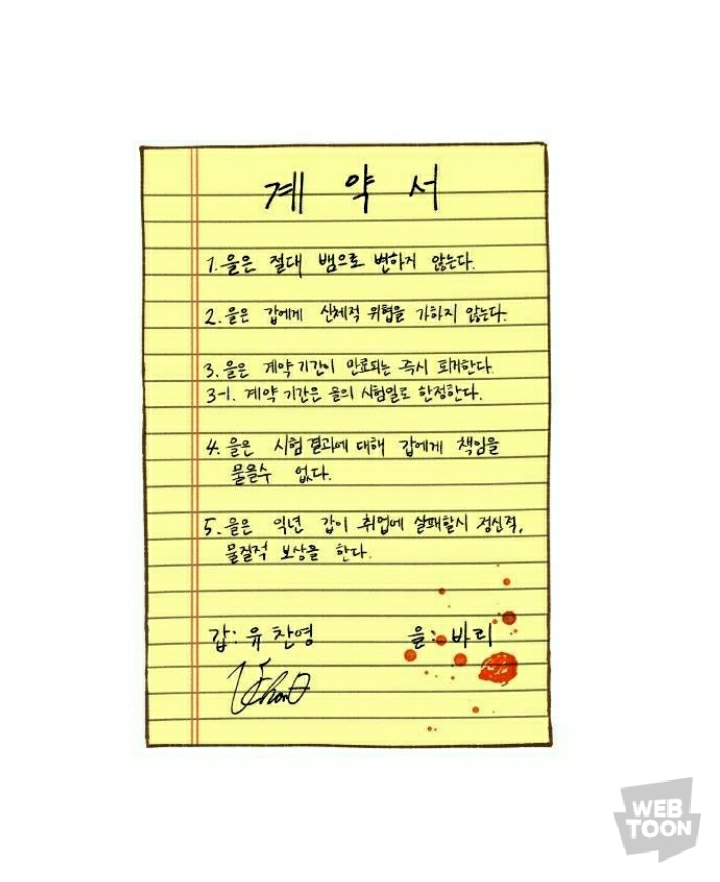 계약서
1. 을은 절대 뱀으로 변하지 않는다.
2. 을은 갑에게 신체적 위협을 가하지 않는다.
3. 을은 계약기간이 만료되는 즉시 퇴거한다.
3-1. 계약 기간은 을의 시험일로 한정한다.
4. 을은 시험결과에 대해 갑에게 책임을
물을수 없다.
5. 을은 익년 갑이 취업에 실패할시 정신적,
물질적 보상을 한다.
갑: 유찬영 을: 바리
WEB
TOON